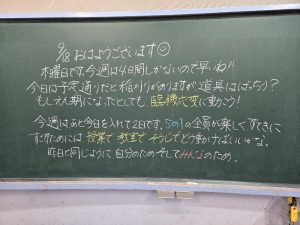 9/18 おはようございます☺
木曜日です。今週は4日間しかないので早いね!!
今日は予定通りだと稲刈りがありますが道具はばっちり?
もし延期になったとしても、臨機応変に動こう!
今週はあと今日を入れて2日です。5の1の全員が楽しくすてきに
すごすためには 授業で 教室で そうじで どう動けばいいかな。
昨日と同じように 自分のため そして みんなのため。